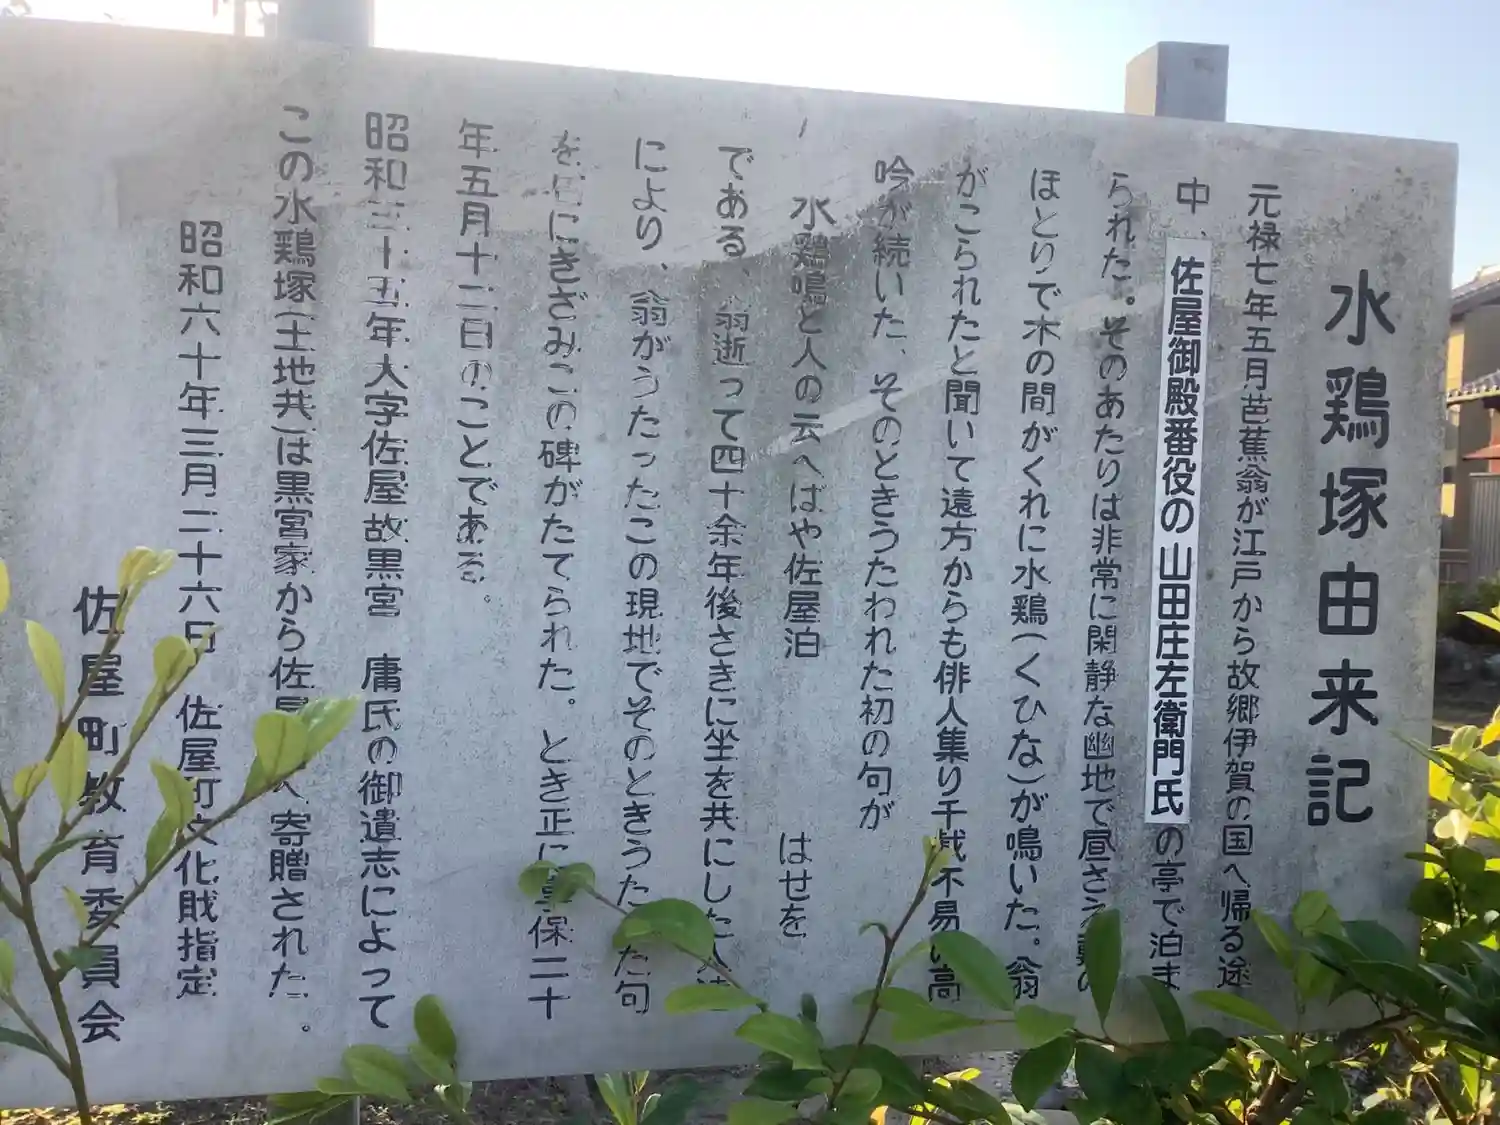 水鶏塚由来記
元禄七年五月芭蕉翁が江戸から故郷伊賀の国へ帰る途
中、佐屋御殿番役の山田庄左衛門氏の亭で泊ま
られた。そのあたりは非常に閑静な幽地で昼さえ
ほとりで木の間がくれに水鶏(くひな)が鳴いた。翁
がこられたと聞いて遠方からも俳人集り千載不易い高
吟が続いた、そのときうたわれた初の句が
水鶏鳴と人の云へばや佐屋泊 はせを
である、翁逝って四十余年後さきに坐を共にした人
により、翁がうたったこの現地でそのときうた た句
を にきざみこの碑がたてられた。とき正に 保二十
年五月十二日のことである。
昭和三十五年大字佐屋故黒宮 庸氏の御遺志によって
この水鶏塚(土地共)は黒宮家から佐屋 へ寄贈された。
昭和六十年三月二十六日 佐屋町文化財指定
佐屋町教育委員会